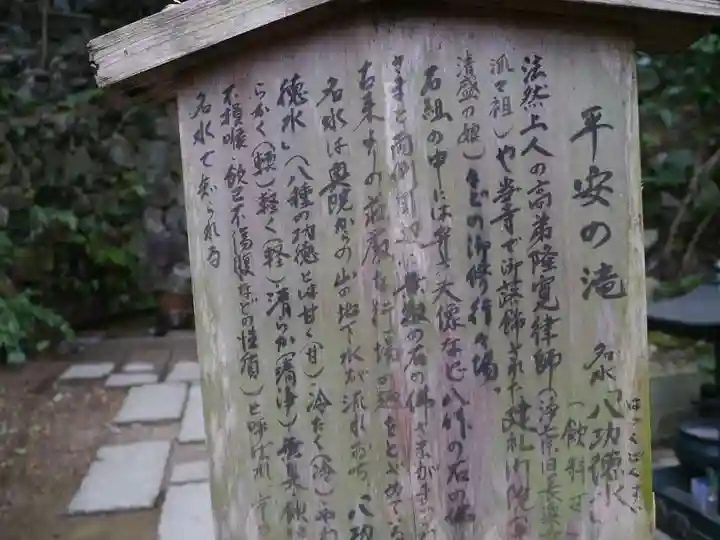 平安の滝 名水「八功徳水」
はっくどくすい
(飲料
法然上人の高弟隆寛律師(浄土宗旧長楽寺
派の祖)や当寺で御落飾された建礼門院
清盛の娘)などの御修行の場。
石組の中には弁才天像など八体の石の佛
さまと両側周辺に無数の石の佛さまが
古来よりの荘厳な行場の趣をとどめている
名水は奥院からの山の地下水が流れおち 八功
徳水」(八種の功徳とは甘く(甘)・冷たく(冷)・やわ
らかく(軟)・軽く(軽)・清らか(清浄)・無臭・飲時
不損喉・飲已不傷腹などの性質)と呼ばれ
名水で知られる